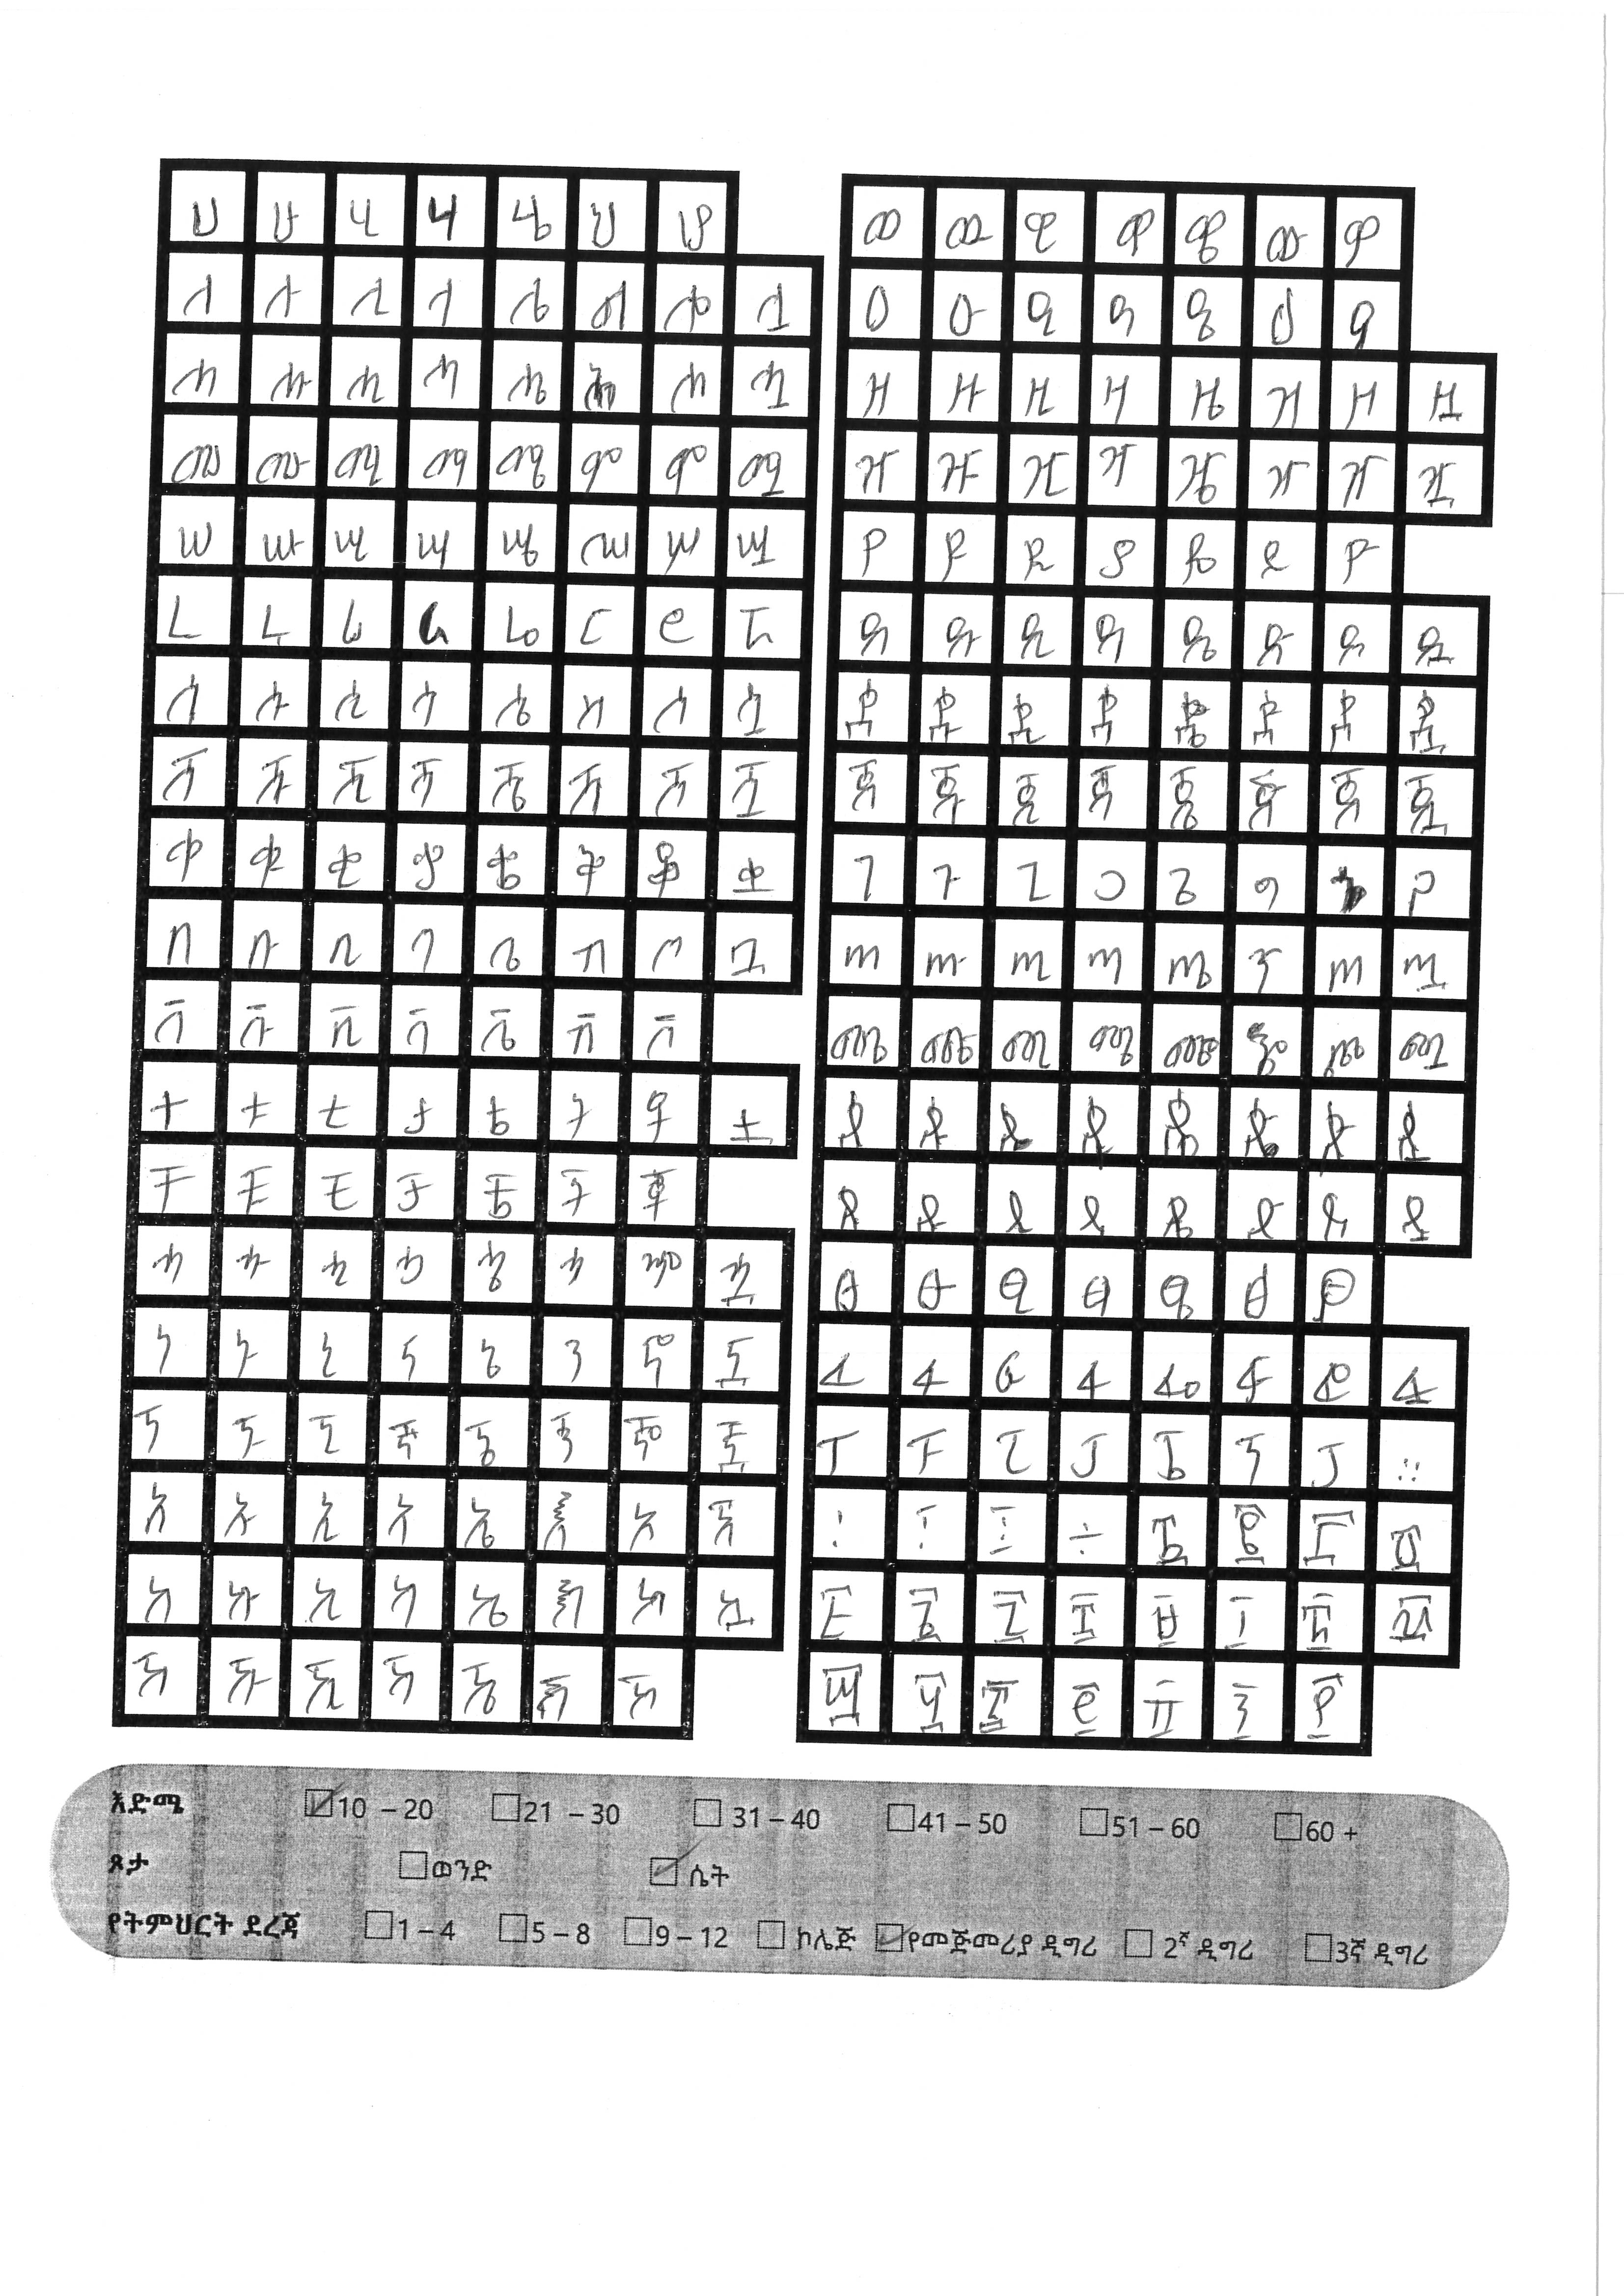 ሀ ሁ ሂ ሃ ሄ ህ ሆ
ለ ሉ ሊ ላ ሌ ል ሎ ሏ
ሐ ሑ ሒ ሓ ሔ ሖ ሗ
መ ሙ ሚ ማ ሜ ም ሞ ሟ
ሠ ሡ ሢ ሣ ሤ ሥ ሦ ሧ
ረ ሩ ሪ ራ ሬ ር ሮ ሯ
ሰ ሱ ሲ ሳ ሴ ስ ሶ ሷ
ሸ ሹ ሺ ሻ ሼ ሽ ሾ ሿ
ቀ ቁ ቂ ቃ ቄ ቅ ቆ ቋ
በ ቡ ቢ ባ ቤ ብ ቦ ቧ
ቨ ቩ ቪ ቫ ቬ ቭ ቮ
ተ ቱ ቲ ታ ቴ ት ቶ ቷ
ቸ ቹ ቺ ቻ ቼ ች ቾ
ኀ ኁ ኂ ኃ ኄ ኅ ኆ ኋ
ነ ኑ ኒ ና ኔ ን ኖ ኗ
ኘ ኙ ኚ ኛ ኜ ኝ ኞ ኟ
አ ኡ ኢ ኣ ኤ እ ኦ ኧ
ከ ኩ ኪ ካ ኬ ክ ኮ ኳ
ኸ ኹ ኺ ኻ ኼ ኽ ኾ
ወ ዉ ዊ ዋ ዌ ው ዎ
ዐ ዑ ዒ ዓ ዔ ዕ ዖ
ዘ ዙ ዚ ዛ ዜ ዝ ዞ ዟ
ዠ ዡ ዢ ዣ ዤ ዥ ዦ ዧ
የ ዩ ዪ ያ ዬ ይ ዮ
ደ ዱ ዲ ዳ ዴ ድ ዶ ዷ
ዸ ዹ ዺ ዻ ዼ ዽ ዾ ዿ
ጀ ጁ ጂ ጃ ጄ ጅ ጆ ጇ
ገ ጉ ጊ ጋ ጌ ግ
ጠ ጡ ጢ ጣ ጤ ጥ ጦ ጧ
ጸ ጹ ጺ ጻ ጼ ጽ ጾ ጿ
ፀ ፁ ፂ ፃ ፄ ፅ ፆ
ፈ ፉ ፊ ፋ ፌ ፍ ፎ ፏ
ፐ ፑ ፒ ፓ ፔ ፕ ፖ ።
፡ ፤ ፩ ፪ ፫ ፬
፭ ፮ ፯ ፰ ፱ ፲ ፳ ፴
፵ ፶ ፷ ፸ ፹ ፺ ፻
እድሜ 10 – 20 21 – 30 31 – 40 41 – 50 51 – 60 60 +
ጾታ ወንድ ሴት
የትምህርት ደረጃ 1 – 4 5 – 8 9 – 12 ኮሌጅ የመጅመሪያ ዲግሪ 2ኛ ዲግሪ 3ኛ ዲግሪ